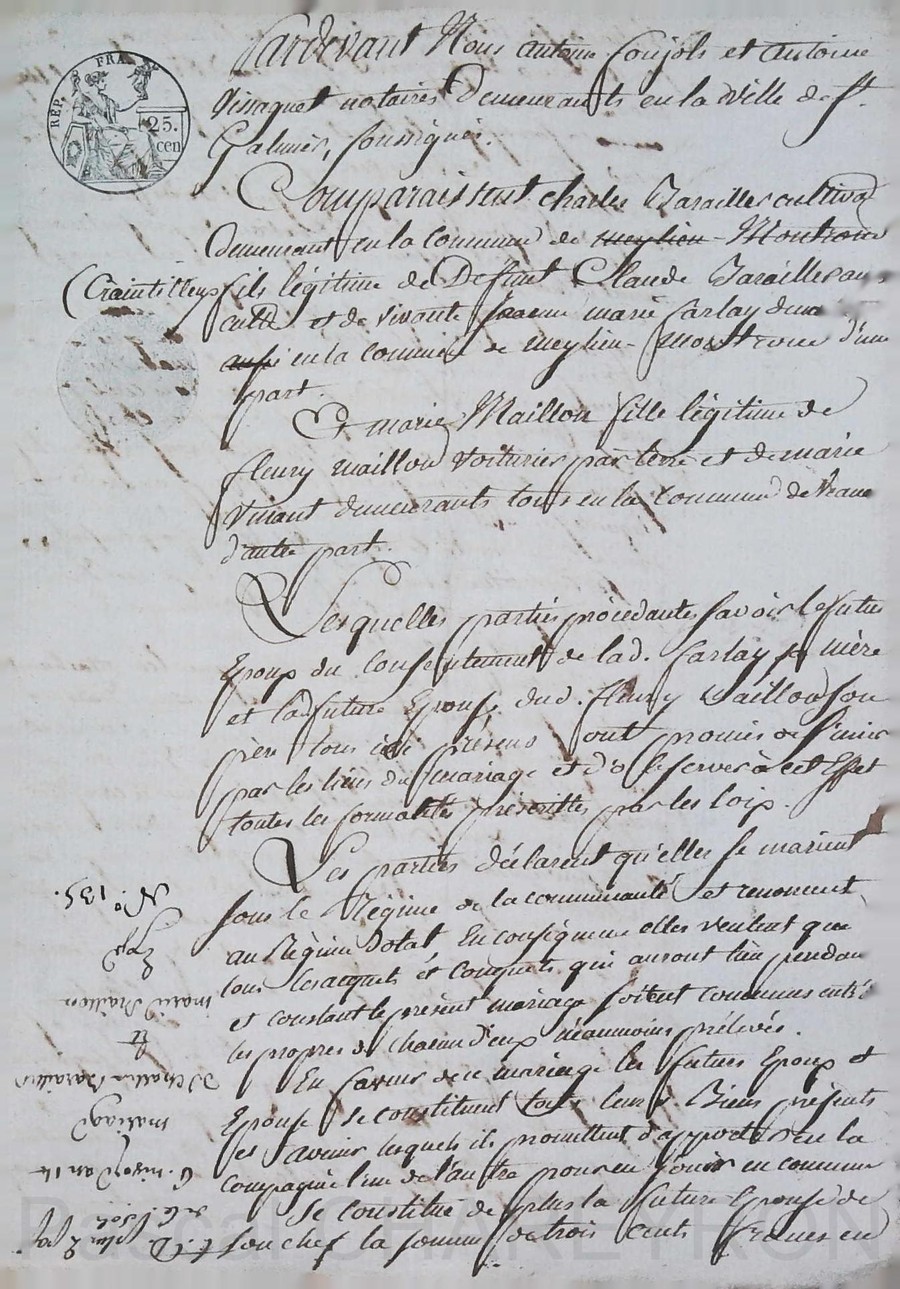 RÉP. FRA.
25.
cen
Pardevant Nous antoine Coujols et antoine
Vissaguet notaires Demeurants en la Ville de St.
Galmier, soussignés.
Comparaissent charles Barailler cultiva
demeurant en la commune de meylieu Montrond
(Craintilleux fils légitime de Défunt Claude Barailler au
cult et de vivante jeanne marie Carlay dem
aussi en la commune de meylieu - Montrond d'une
part.
Et marie Maillon fille légitime de
fleury maillon Voiturier par terre et de marie
Vivant demeurants tous en la Commune de Veauc
d'autre part.
Lesquelles parties procédantes savoir le futur
Epoux du consentement de lad. Carlay sa mère
et la future Epouse dud. fleury Maillon son
père tous ici présens ont promis de s'unir
par les liens du mariage et d'observer à cet Effet
toutes les formalités préscrittes par les loix.
Les parties déclarent qu'elles se marient
sous le Régime de la communauté et renoncent
au Régime Dotal En conséquence elles veulent que
tous les acquets et conquets qui auront lieu pendan
et constant le présent mariage soient communs entr'e
les propres de chacun d'eux néanmoins prélevés.
En faveur de ce mariage les futurs Epoux et
Epouse se constituent tous leurs Biens présents
et avenir lesquels ils promettent d'apporter en la
compagnie l'un de l'autre pour en jouir en commun
Se constitue de plus la future Epouse de
son chef la somme de trois cents francs en
N.° 135.
marie Maillon
et
D Charles Barailler
mariage
an 14
Pascal CHAREYRON